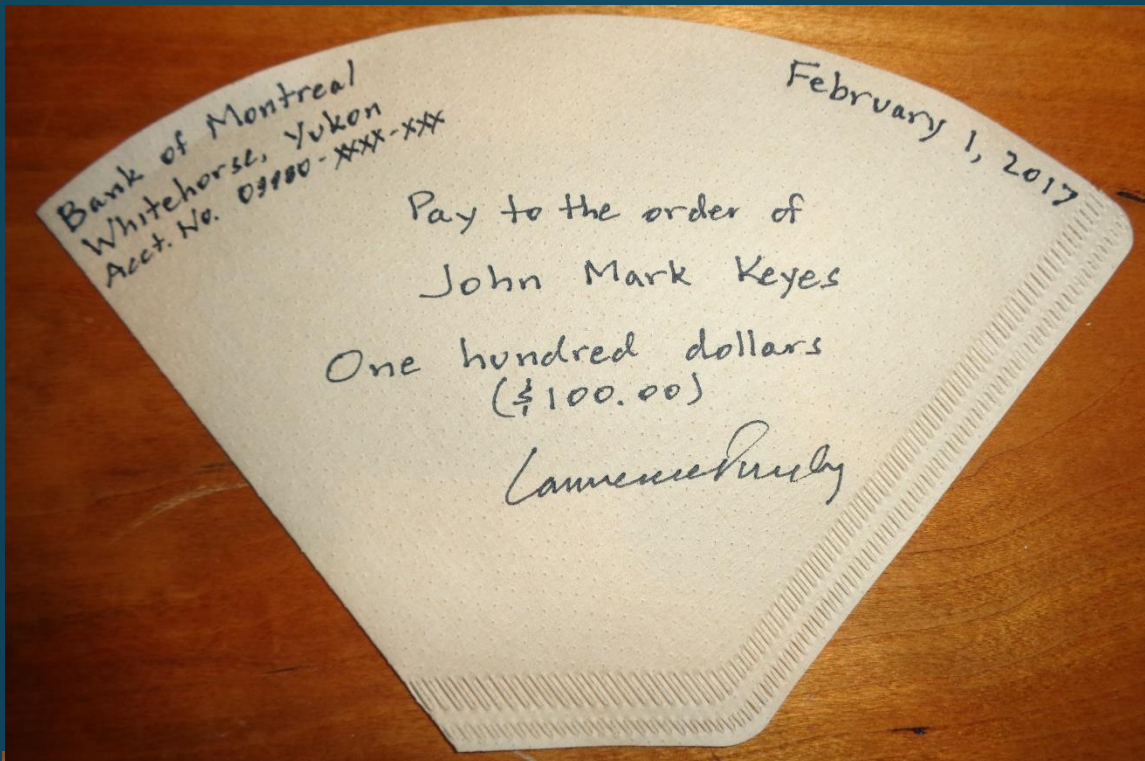 Bank of Montreal
Whitehorse, Yukon
Acct. No. 09980-XXXX-XXX
February 1, 2017
Pay to the order of
John Mark Keyes
One hundred dollars
($100.00)